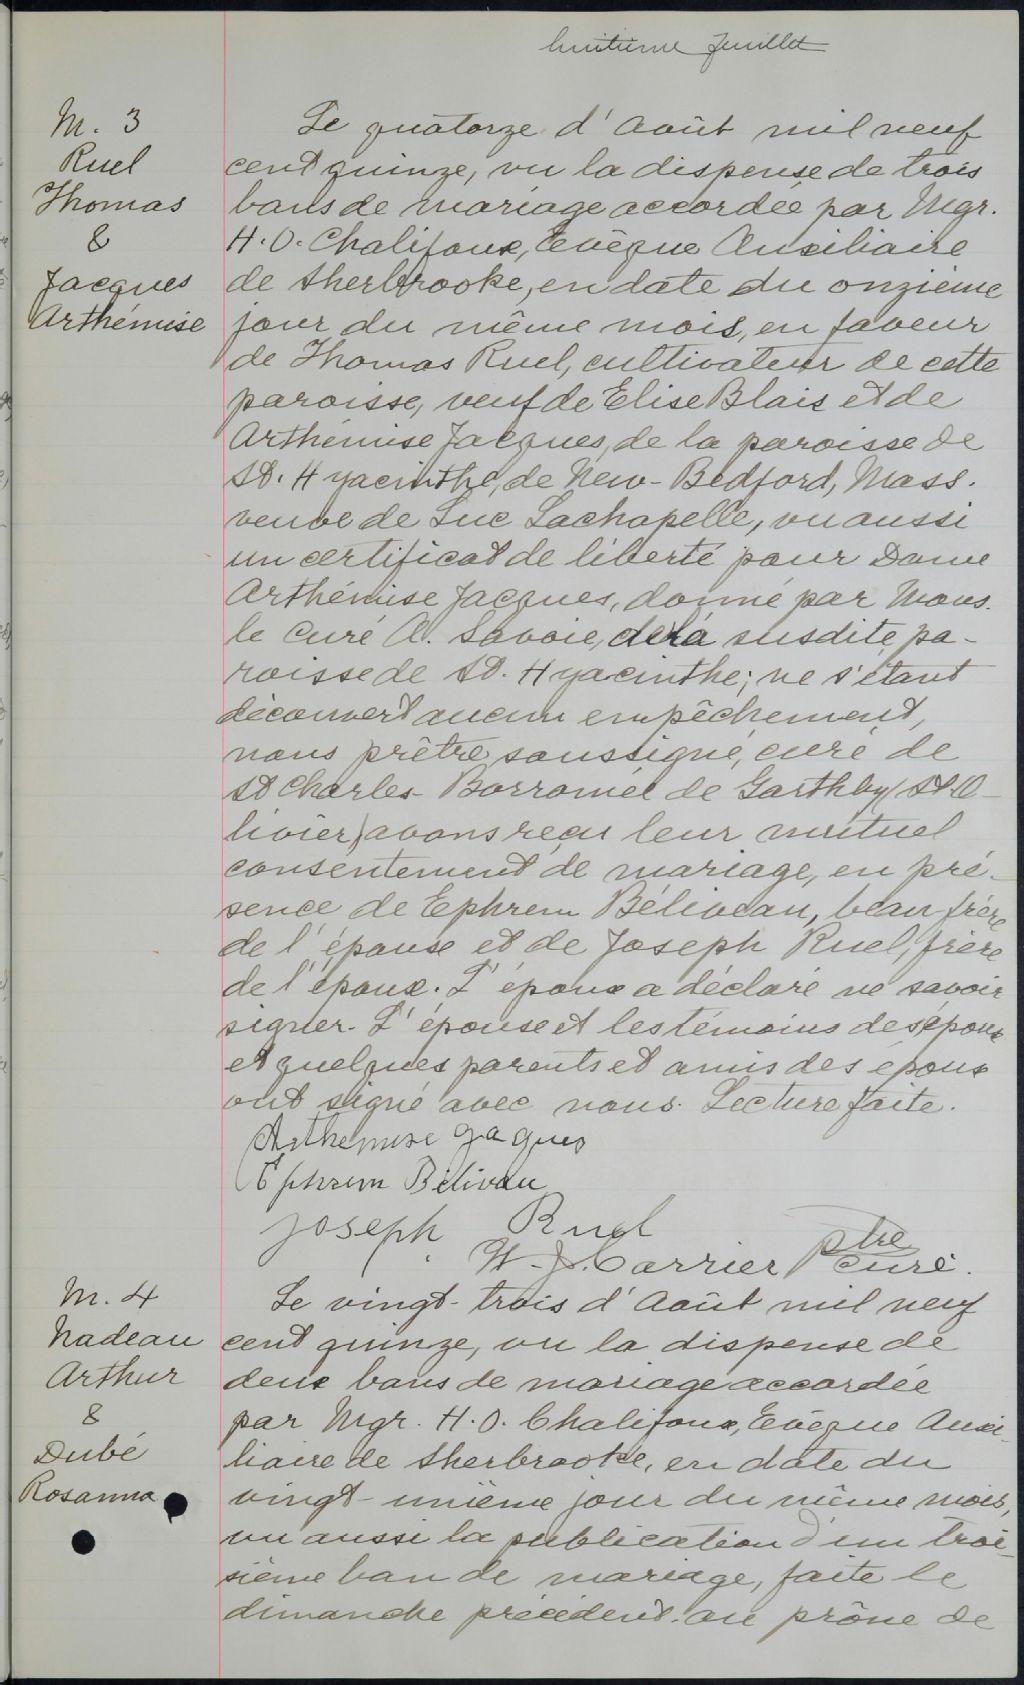 huitième feuillet
M. 3
Ruel
Thomas
&
Jacques
Arthémise
Le quatorze d'Août mil neuf
cent quinze, vu la dispense de trois
bans de mariage accordée par Mgr.
H. O. Chalifoux, Evêque Auxiliaire
de Sherbrooke, en date du onzième
jour du même mois, en faveur
de Thomas Ruel, cultivateur de cette
paroisse, veuf de Elise Blais et de
Arthémise Jacques, de la paroisse de
St. Hyacinthe, de New-Bedford, Mass.
veuve de Luc Lachapelle, vu aussi
un certificat de liberté pour Dame
Arthémise Jacques, donné par Mons.
le Curé A. Savoie, de la susdite pa-
roisse de St. Hyacinthe; ne s'étant
découvert aucun empêchement,
nous prêtre soussigné, curé de
St Charles-Borromée de Garthby (St O-
livier) avons reçu leur mutuel
consentement de mariage, en pré-
sence de Ephrem Béliveau, beau-frère
de l'épouse et de Joseph Ruel, frère
de l'époux. L'époux a déclaré ne savoir
signer. L'épouse et les témoins des époux
et quelques parents et amis des époux
ont signé avec nous. Lecture faite.
Arthemise Jaques
Ephrem Belivau
Joseph Ruel
W. J. Carrier Ptre
curé.
M. 4
Nadeau
Arthur
&
Dubé
Rosanna
Le vingt-trois d'Août mil neuf
cent quinze, vu la dispense de
deux bans de mariage accordée
par Mgr. H. O. Chalifoux, Evêque Auxi-
liaire de Sherbrooke, en date du
vingt-unième jour du même mois,
vu aussi la publication d'un troi-
sième ban de mariage, faite le
dimanche précédent au prône de